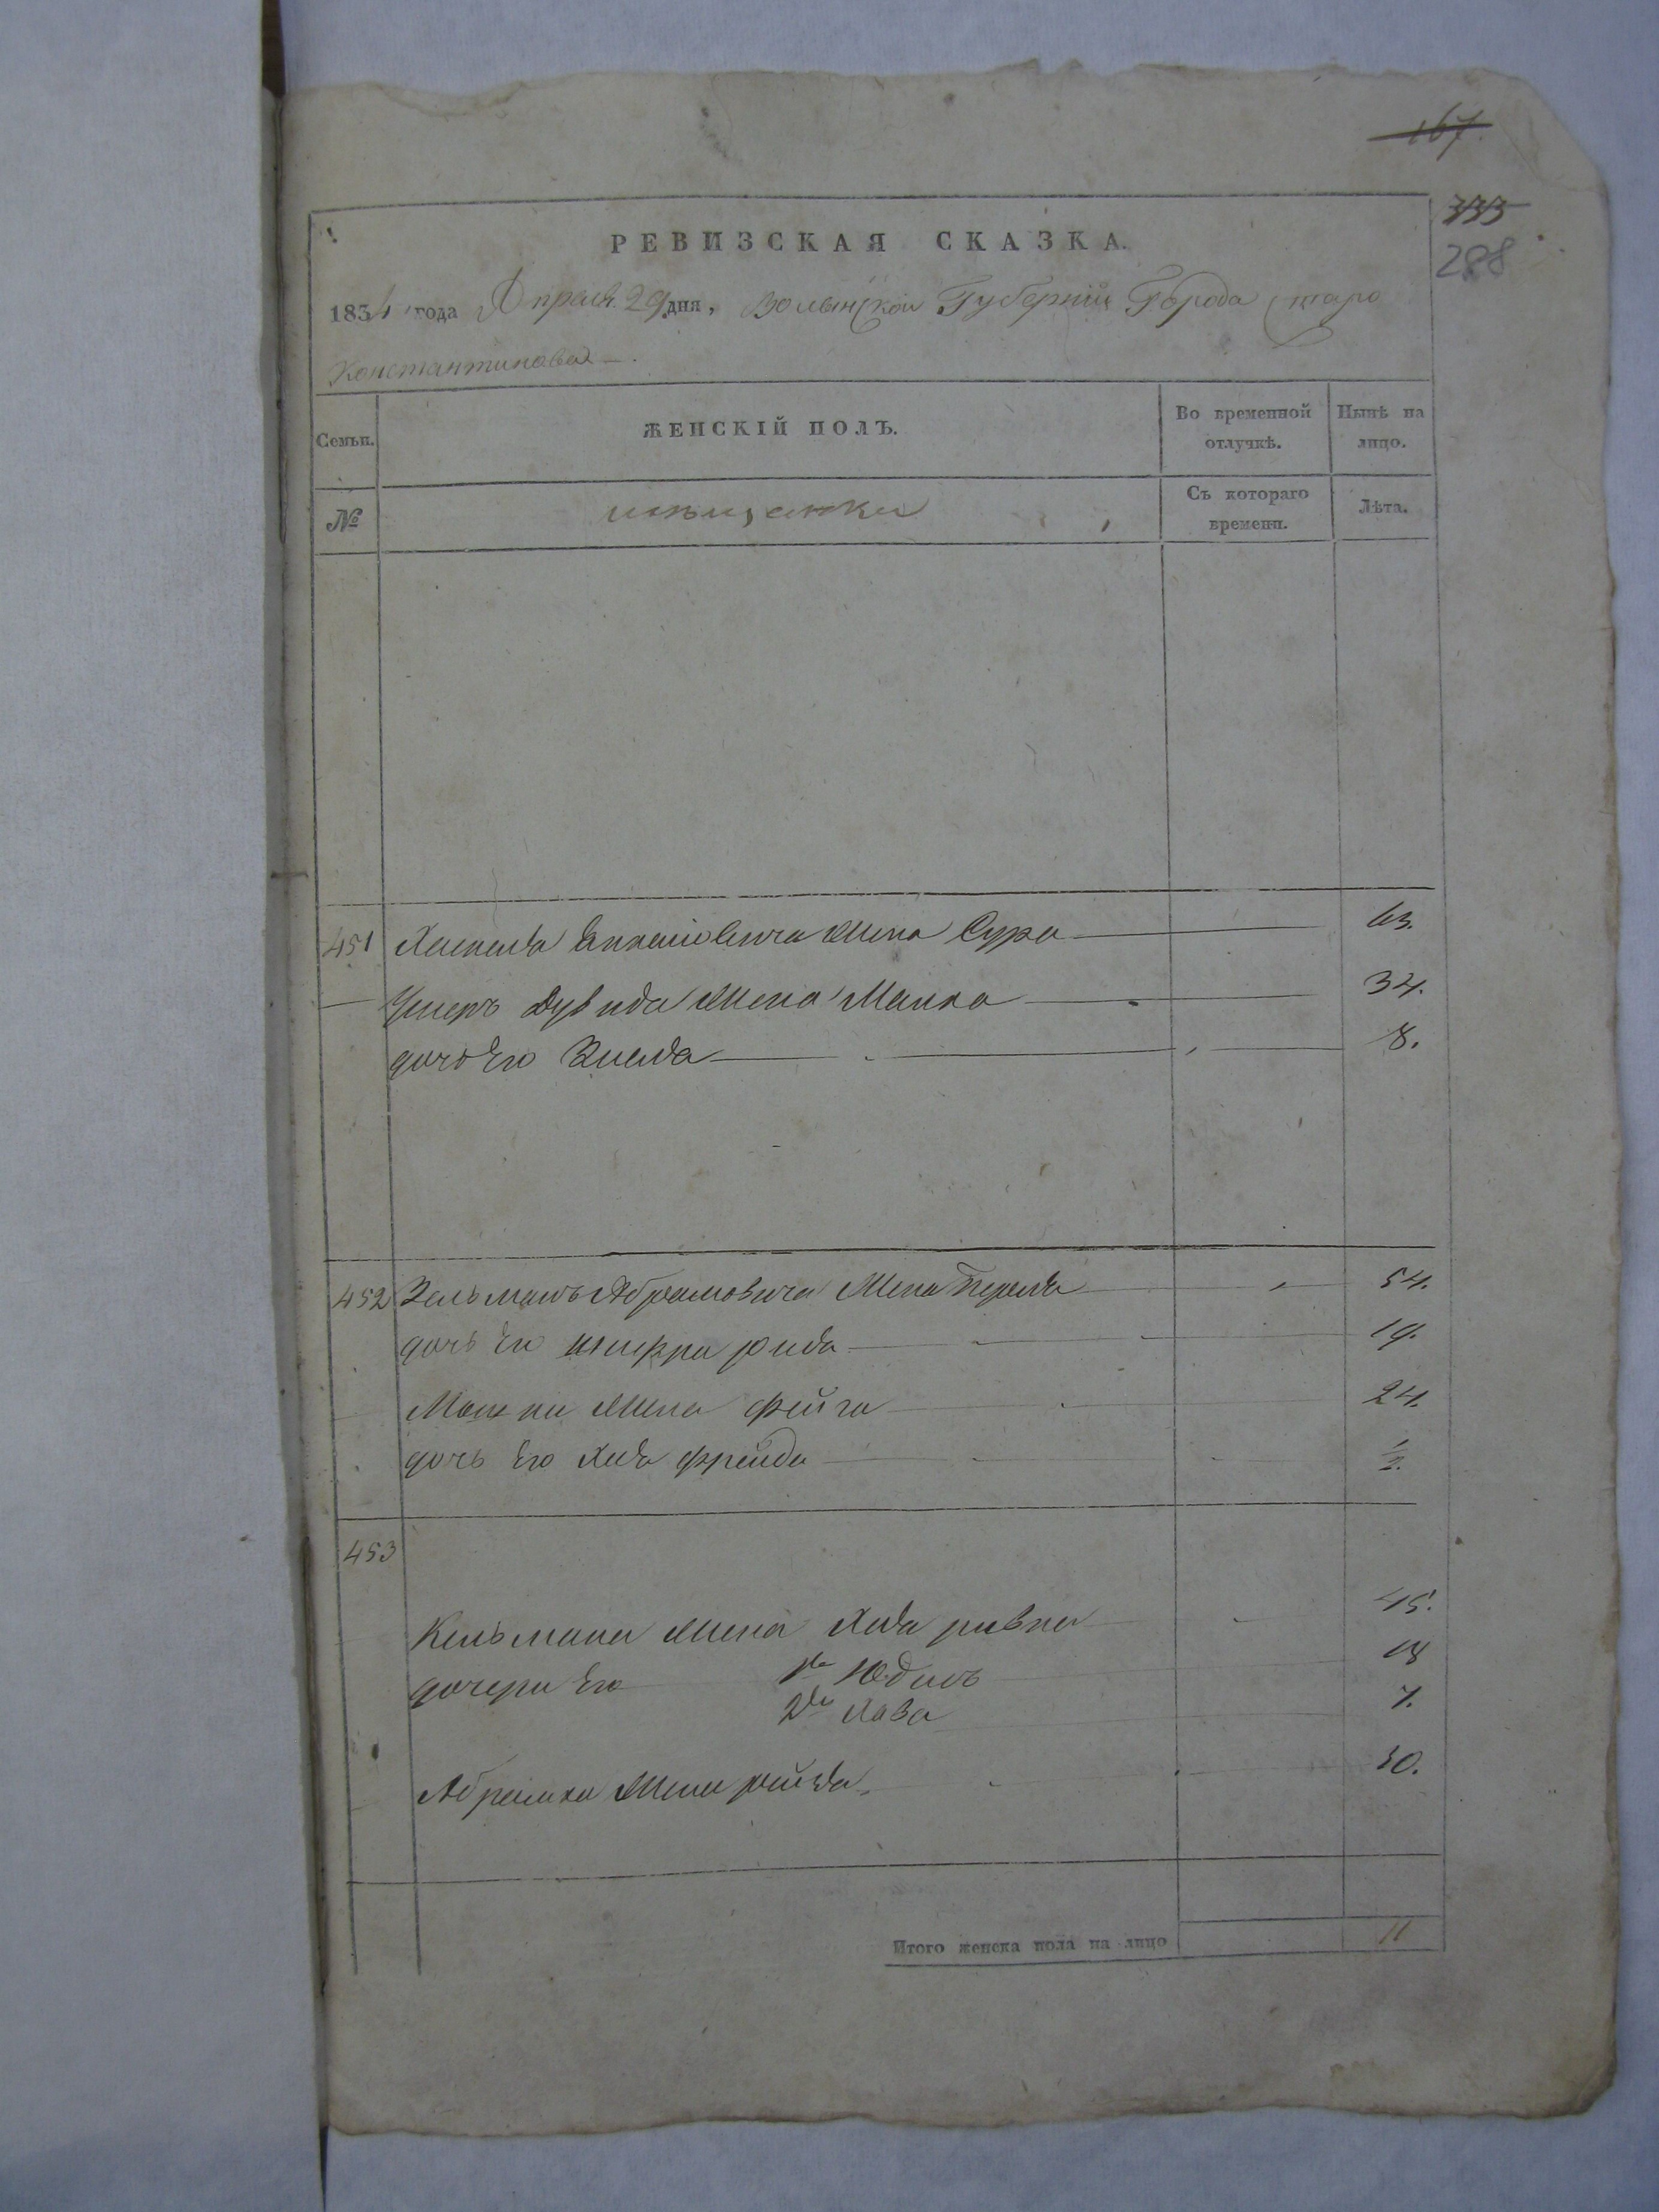 167.
333
288
РЕВИЗСКАЯ СКАЗКА.
1834 года Апреля 29 дня, Волынской Губерніи Города Старо
Константинова
Семьи. ЖЕНСКІЙ ПОЛЪ. Во временной отлучкѣ. Нынѣ на лицо.
№ мѣщанки Съ котораго времени. Лѣта.
451 жена Сура 63.
Дувида жена Малка 34.
дочь Его 8.
452 Зельманъ Абрамовича жена Перля 54.
дочь Его шифра 19.
Мошки жена фейга 24.
дочь Его Хая фрейда 1/2.
453
Кельмана жена Хая ривка 45.
дочери Его 1я Юдись 18
2я Хава 7.
Абрамка жена рейзя 30.
Итого женска пола на лицо 11